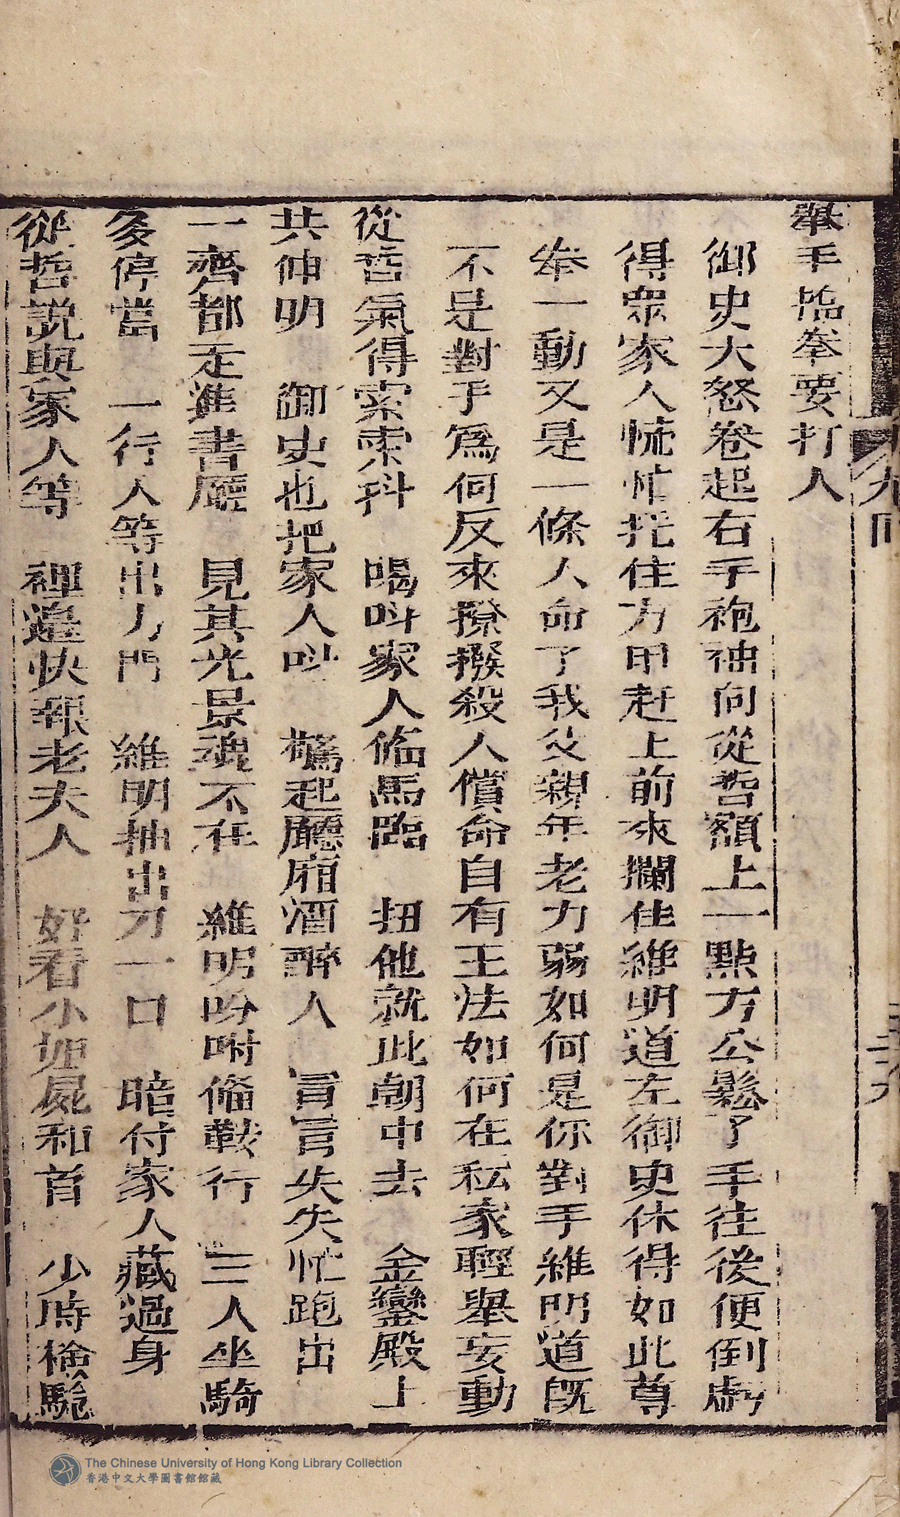 舉手掄拳要打人
御史大怒卷起右手袍袖向從哲額上一點方公鬆了手往後便倒虧
得眾家人恠忙托住方甲赶上前來攔住維明道左御史休得如此尊
拳一動又是一條人命了我父親年老力弱如何是你對手維明道既
不是對手爲何反來撩撥殺人償命自有王法如何在私家輕舉妄動
從哲氣得索索抖 喝呌家人俻馬臨 扭他就此朝中去 金鑾殿上
共伸明 御史也把家人呌 驚起廳廂酒醉人 冒冒失失忙跑出
一齊都走進書廳 見其光景魂不在 維明吩咐俻鞍行 三人坐騎
多停當 一行人等出方門 維明抽出刀一口 暗付家人藏過身
從哲説與家人等 裡邉快報老夫人 好看小姐屍和首 少時檢驗
The Chinese University of Hong Kong Library Collection
香港中文大學圖書館館藏